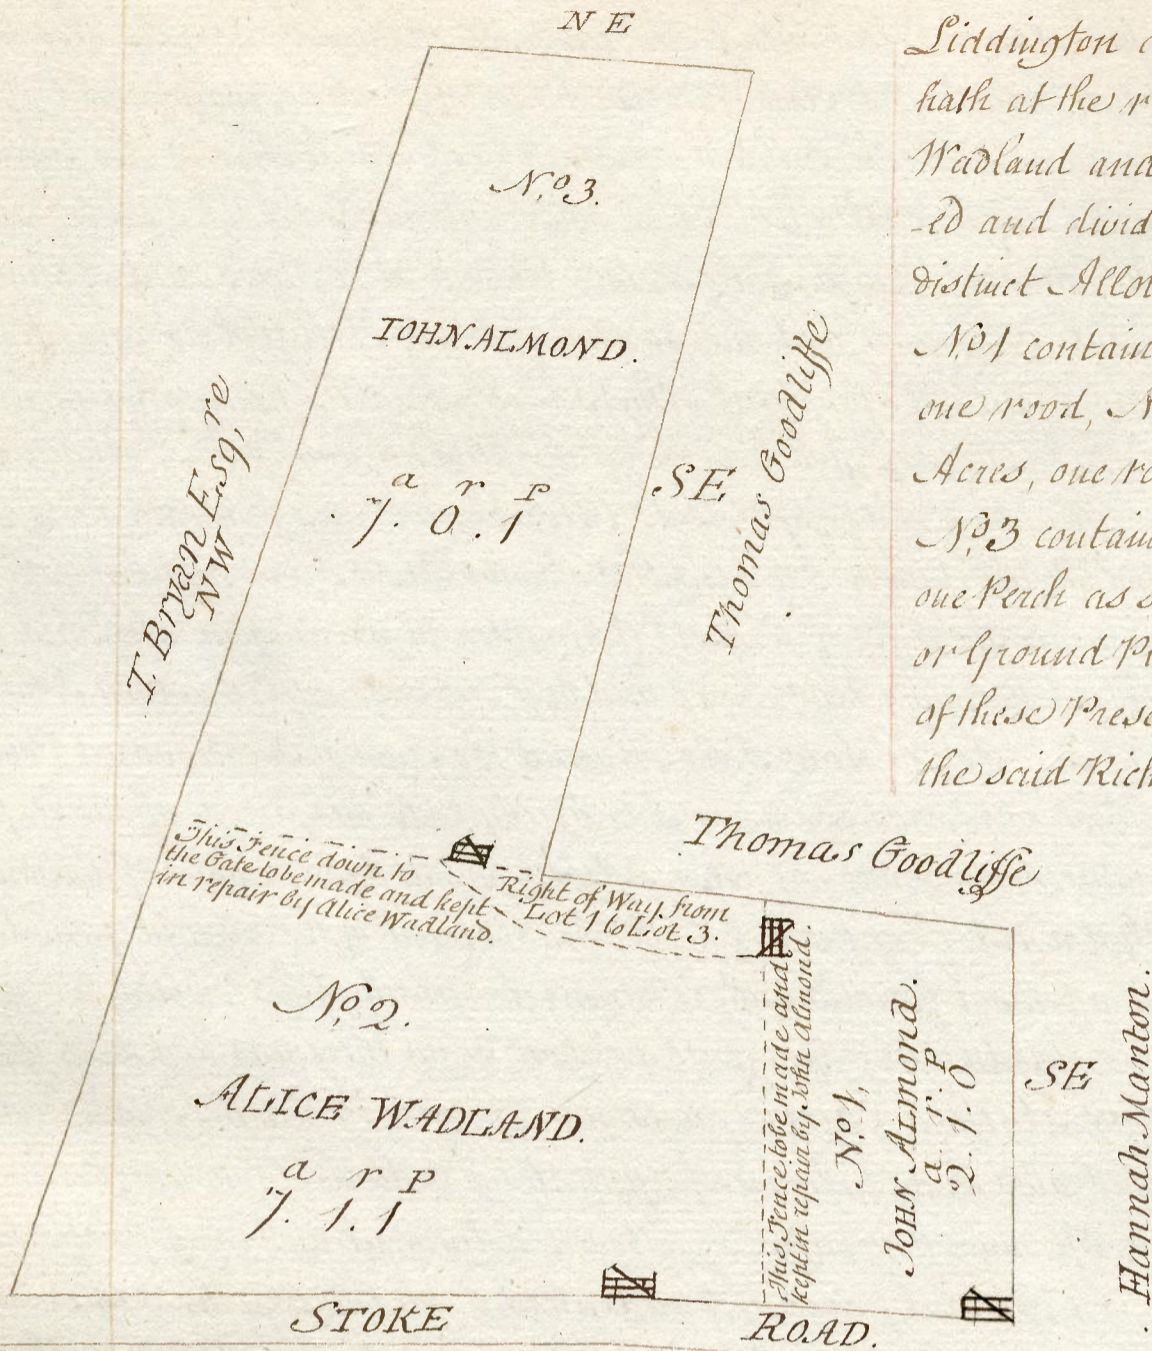 N E
N.º 3.
IOHN ALMOND.
a r P
7. 0. 1
SE
Thomas Goodliffe
T. Bryan Esq,re
NW
This Fence down to
the Gate to be made and kept
in repair by Alice Wadland.
Right of Way from
Lot 1 to Lot 3.
Thomas Goodliffe
Nº 2.
ALICE WADLAND.
a r P
7. 1. 1
This Fence to be made and
kept in repair by John Almond.
N.º 1,
JOHN ALMOND.
a. r. P
2. 1. 0
SE
Hannah Manton.
STOKE ROAD.
Liddington
hath at the
Wadland and
-ed and divid
distinct Allot
N.º 1 contain
one rood,
Acres, one
N.º 3 contain
one Perch as
or Ground
of these Prese
the said Rich